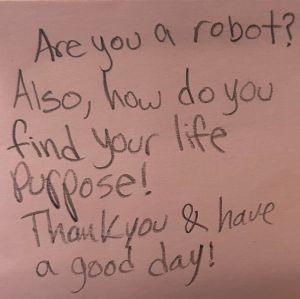 Are you a robot?
Also, how do you
find your life
purpose!
Thank you & have
a good day!